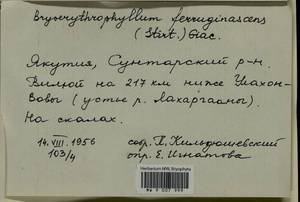 Bryoerythrophyllum ferruginascens
(Stirt.) Giac.
Якутия, Сунтарский р-н.
Вилюй на 217 км ниже
(устье р. Лахаргааны).
На скалах.
14. VIII. 1956
103/4
собр. Кильдюшевский
опр. Е. Игнатова
Herbarium MW, Bryophyta